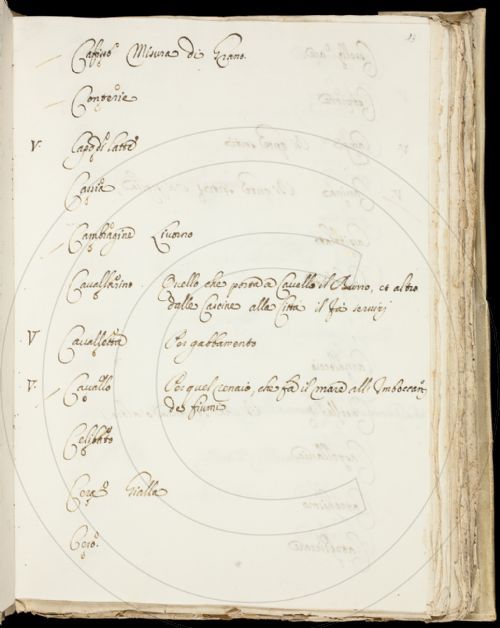 Misura di Grano.
Conterie
V. Capo di latte
Cavia
Livorno
Cavallarino Quello che porta a Cavallo il Burro, et altro
dalle Cascine alla Città il fa servirj
V Cavalletta Per gabbamento
V. Cavallo Per quel renaio, che fa il mare all'Imboccar
de fiumi
Cera Gialla
Cero.